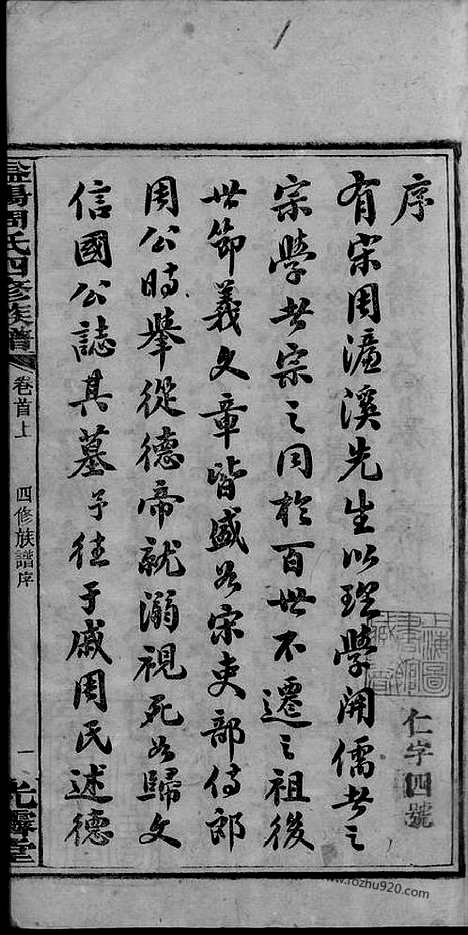 序
有宋周濂溪先生以理學開儒者之
宗學者宗之同於百世不遷之祖後
世節義文章皆盛如宋吏部侍郎
周公時舉從德帝就溺視死如歸文
信國公誌其墓予往于戚周氏述德
益陽周氏四修族譜
卷首上
四修族譜序
一
光霽堂
仁字四號
上海圖書館藏書
www.rozhu920.com